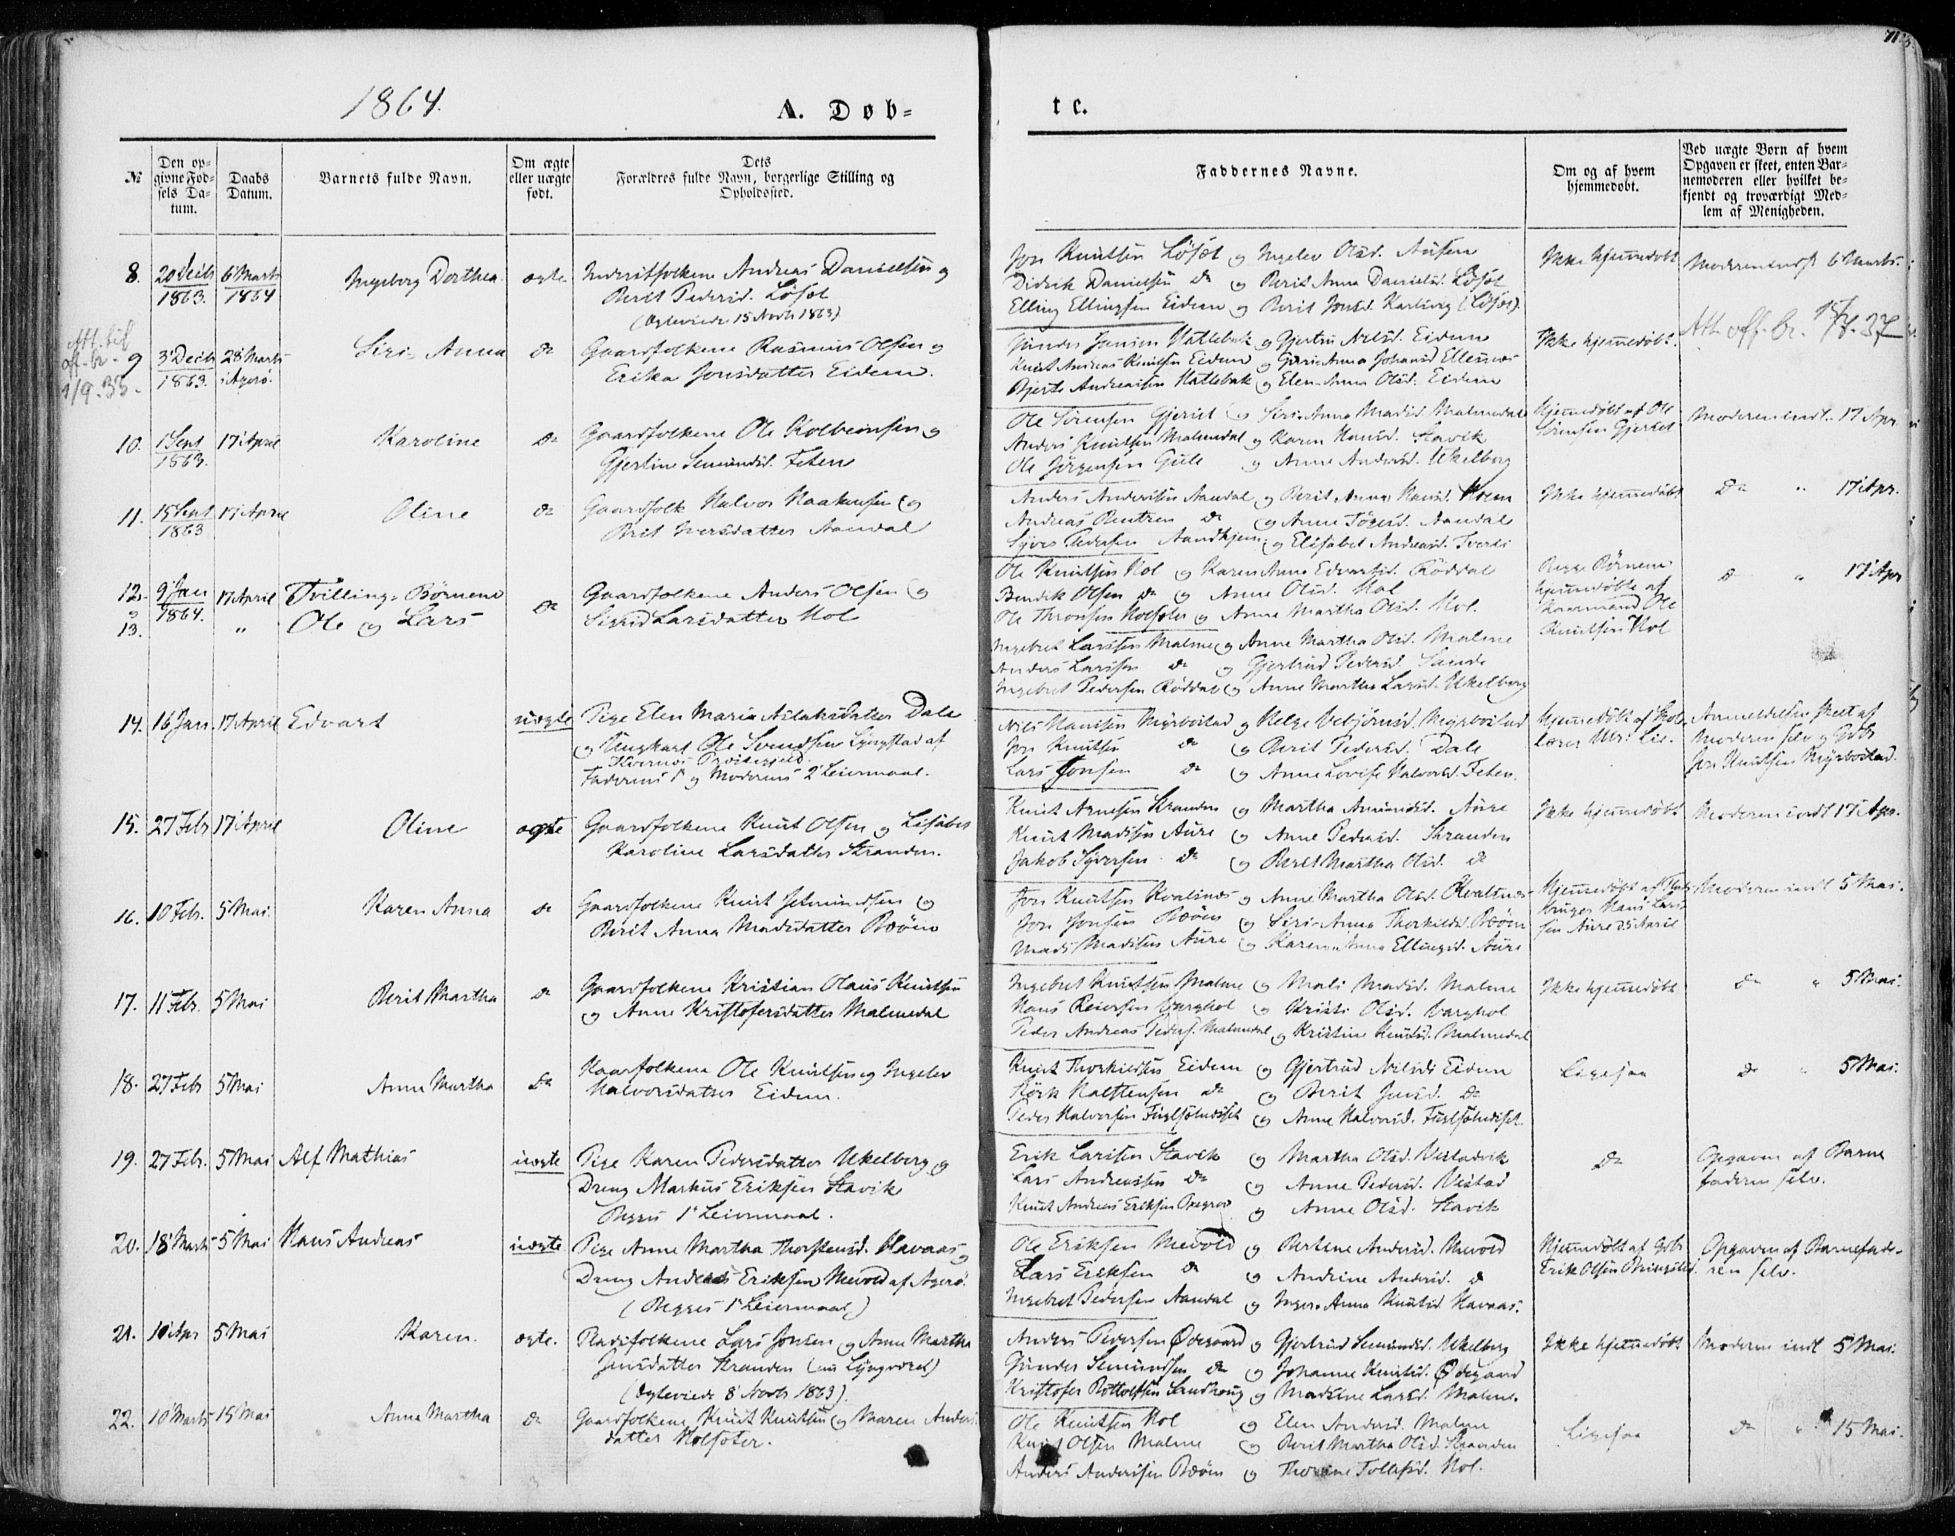 1864.
A. Døb-
te.
71
№
Den op-
givne Fød-
sels Da-
tum.
Daabs
Datum.
Barnets fulde Navn.
Om ægte
eller uægte
født.
Dets
Forældres fulde Navn, borgerlige Stilling og
Opholdssted.
Faddernes Navne.
Om og af hvem
hjemmedøbt.
Ved uægte Børn af hvem
Opgaven er skeet, enten Bar-
nemoderen eller hvilket be-
kjendt og troværdigt Med-
lem af Menigheden.
8. 20 Decb 1863. 6 Marts 1864 Ingeborg Dorthea ægte Inderstfolkene Andreas Danielsen og
Berit Pedersd. Løset
(Ægteviede 15 Novb 1863)
Jon Knutsen Løset og Ingelev Olsd.
Didrik Danielsen do og Berit Anna Danielsd. Løset
Elling Ellingsen Eidem og Berit Jonsd. (Løset)
Ikke hjemmedøbt
Moderen indl 6 Marts.
Att. til
of. br.
1/9.35.
9 3 Decb 1863. 28 Marts i Agerø. Siri-Anna do Gaardfolkene Rasmus Olsen og
Erika Jonsdatter Eidem.
Gunder Jensen Hatlebak og Gjertru Nilsd. Eidem
Knut Andreas Knutsen Eidem og Guri Anna Johansd
Bjerte Andreassen Hatlebak og Elen Anna Olsd. Eidem
Ikke hjemmedøbt.
Att. off. br.
10. 1 Sept 1863. 17 April Karoline do Gaardfolkene Ole Kolbeinsen og
Gjertine Semundsd. Feten
Ole Sørensen Gjerset og Siri-Anna Madsd. Malmedal
Anders Knutsen Malmedal og Karen Hansd. Stavik
Ole Jørgensen Gule og Anne Andersd. Ukelberg
Hjemmedøbt af Ole
Sørensen Gjerset
Moderen indl. 17 Apr.
11. 15 Sept 1863 17 April Oline do Gaardfolk Halvor Haakensen og
Brit Iversdatter Aandal
Anders Andersen Aandal og Berit Anna Hansd. Moen
Andreas Bentsen do og Anne Tøresd. Aandal
Syver Pedersen og Elisabet Andreasd. Tverli
Ikke hjemmedøbt
do " 17 Apr.
12. 9 Jan 1864. 17 April Tvillinge Børnene
13. " Ole og Lars do Gaardfolkene Anders Olsen og
Sigrid Larsdatter Hol
Ole Knutsen Hol og Karen Anna Edvartsd. Røddal
Bendik Olsen do og Anne Olsd. Hol
Ole Thronsen Holsæter og Anne Martha Olsd. Hol.
Ingebret Larssen Malme og Anne Martha Olsd. Malme
Anders Larssen do og Gjertrud Pedersd. Sande
Ingebret Pedersen Røddal og Anne Martha Larsd. Ukelberg
Begge Børnene
hjemmedøbte af
Ole
Knutsen Hol
do " 17 Apr
14. 16 Jan. 17 April Edvart uægte Pige Elen Maria Aslaksdatter Dale
og Ungkarl Ole Svendsen Lyngstad af
Kvernes Præstegjeld.
Faderens 1ste og Moderens 2det Leiermaal.
Nils Hansen Myrbostad og Helge Vebjørnsd. Myrbostad
Jon Knutsen do og Berit Pedersd. Dale
Lars Jonsen do og Anne Lovise Halvorsd. Feten.
Hjemmedøbt af Sko-
lærer Lie.
Anmeldelsen skeet af
Moderen selv og Gdbr
Jon Knutsen Myrbostad.
15. 27 Feb 17 April Oline ægte Gaardfolkene Knut Olsen og Lisabet
Karoline Larsdatter Stranden.
Knut Arnesen Stranden og Martha Amundsd. Aure
Knut Madssen Aure og Anne Pedersd. Stranden
Jakob Syversen do og Berit Martha Olsd. do
Ikke hjemmedøbt
Moderen indl 17 Apr.
16. 10 Feb. 5 Mai. Karen Anna do Gaardfolkene Knut Semundsen og
Berit Anna Madsdatter Bøøen
Jon Knutsen Hvalsnes og Anne Martha Olsd. Hvalsnes
Jon Jonsen Bøøen og Siri-Anna Thorkildsd. Bøøen
Mads Madsen Aure og Karen Anna Ellingsd. Aure
Hjemmedøbt af
Hans Lars-
sen Aure 25 April
Moderen indl 5 Mai.
17. 11 Feb. 5 Mai Berit Martha do Gaardfolkene Kristian Olaus Knutsen
og Anne Kristofersdatter Malmedal
Ingebret Knutsen Malme og Mali Madsd. Malme
Hans Reiersen Varghol og Kristi Olsd. Varghol
Peder Andreas Peders. Malmedal og Kristine Knutsd. Malmedal
Ikke hjemmedøbt
do " 5 Mai.
18. 27 Feb 5 Mai Anne Martha do Gaardfolkene Ole Knutsen og Ingelev
Halvorsdatter Eidem.
Knut Thorkildsen Eidem og Gjertrud Nilsd: Eidem
Størk Halstensen do og Berit Jonsd. do
Peder Halvorsen og Anne Halvorsd.
Ligesaa
do " 5 Mai.
19. 27 Feb. 5 Mai Alf Mathias uægte Pige Karen Pedersdatter Ukelberg og
Dreng Markus Eriksen Stavik
Begges 1ste Leiermaal.
Erik Larssen Stavik og Martha Olsd.
Lars Andreassen do og Anne Pedersd. Vestad
Knut Andreas Eriksen og Anne Olsd. Stavik
do
Opgaven af Barne
faderen selv.
20. 18 Marts 5 Mai Hans Andreas uægte Pige Anne Martha Thorstensd. Havaas og
Dreng Andreas Eriksen Mevold af Agerø.
(Begges 1ste Leiermaal)
Ole Eriksen Mevold og Berlene Andersd. Mevold
Lars Eriksen do og Andrine Andersd. do
Ingebret Pedersen Aandal og Inger-Anna Knutsd. Havaas.
Hjemmedøbt af Gdbr
Erik Olsen
Opgaven af Barnefade-
ren selv.
21. 10 Apr 5 Mai Karen. ægte. Pladsfolkene Lars Jonsen og Anne Martha
Jonsdatter Stranden (nu Lyngværet)
(Ægteviede 8 Novb 1863).
Anders Pedersen Ødegaard og Gjertrud Semundsd. Ukelberg
Gunder Semundsen do og Johanne Knutsd. Ødegaard
Kristofer Rottolfsen Sandhoug og Madsine Larsd. Malme.
Ikke hjemmedøbt
Moderen indl 5 Mai.
22. 10 Marts 15 Mai Anne Martha do Gaardfolkene Knut Knutsen og Maren Anders
datter Holsæter.
Ole Knutsen Hol og Elen Andersd. Malme
Knut Olsen Malme og Berit Martha Olsd. Stranden
Anders Andersen Bøøen og Thorine Tollefsd. Hol.
Ligesaa
do " 15 Mai.